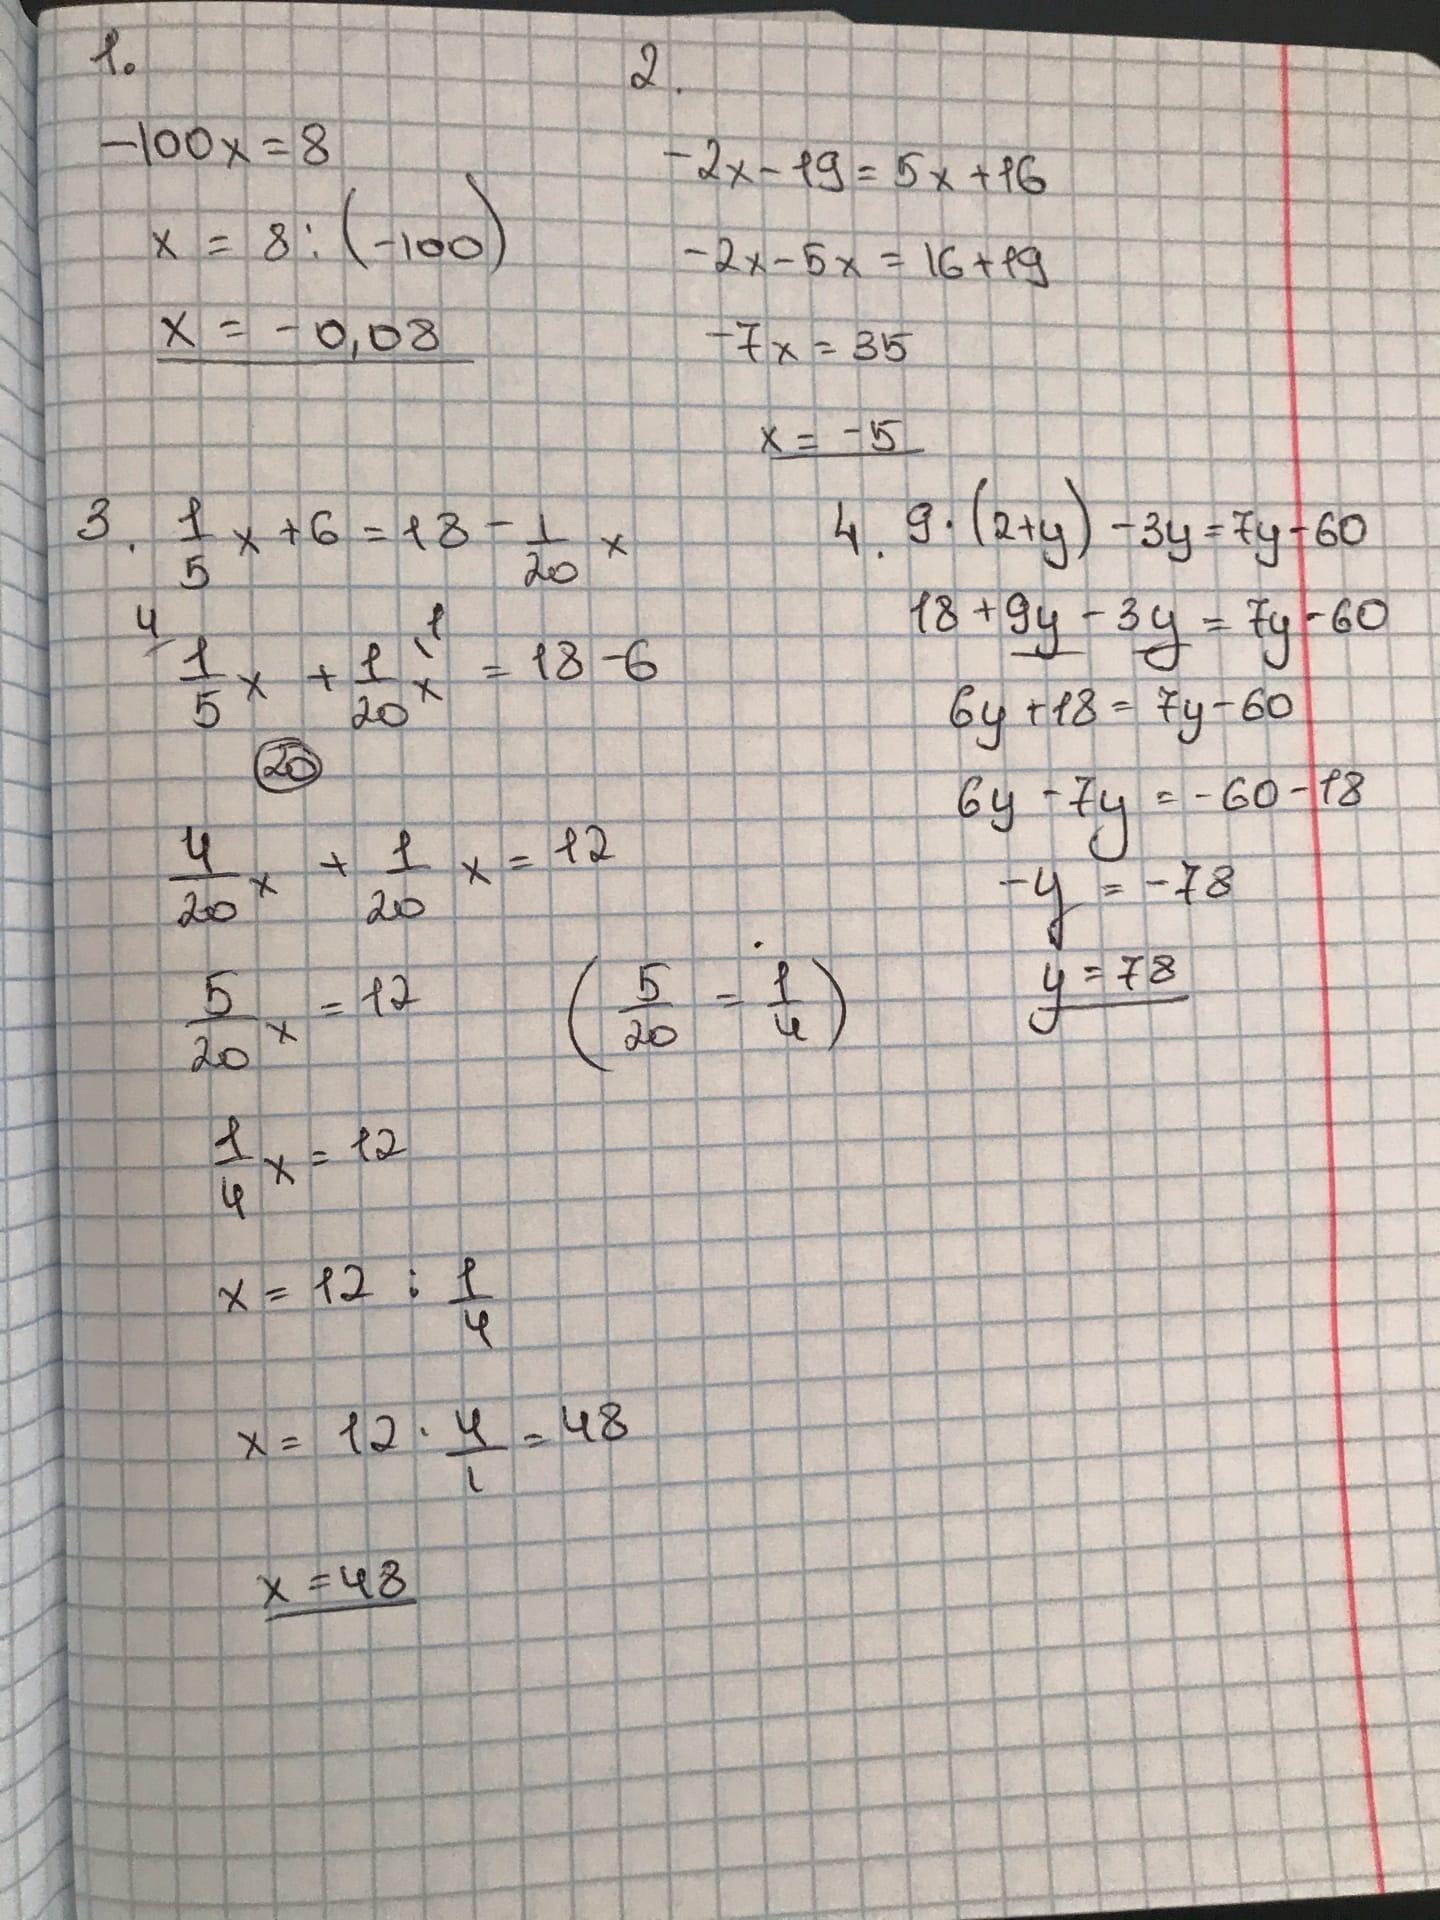 1.
-100x=8
x = 8:(-100)
x = -0,08
2.
-2x-19=5x+16
-2x-5x=16+19
-7x=35
x=-5
3. 1/5 x+6=18-1/20 x
4 1/5 x + 1/20 x 1 =18-6
20
4/20 x + 1/20 x=12
5/20 x =12 (5/20 = 1/4)
1/4 x=12
x=12:1/4
x=12·4/1=48
x=48
4. 9·(2+y)-3y=7y-60
18+9y-3y=7y-60
6y+18=7y-60
6y-7y=-60-18
-y=-78
y=78